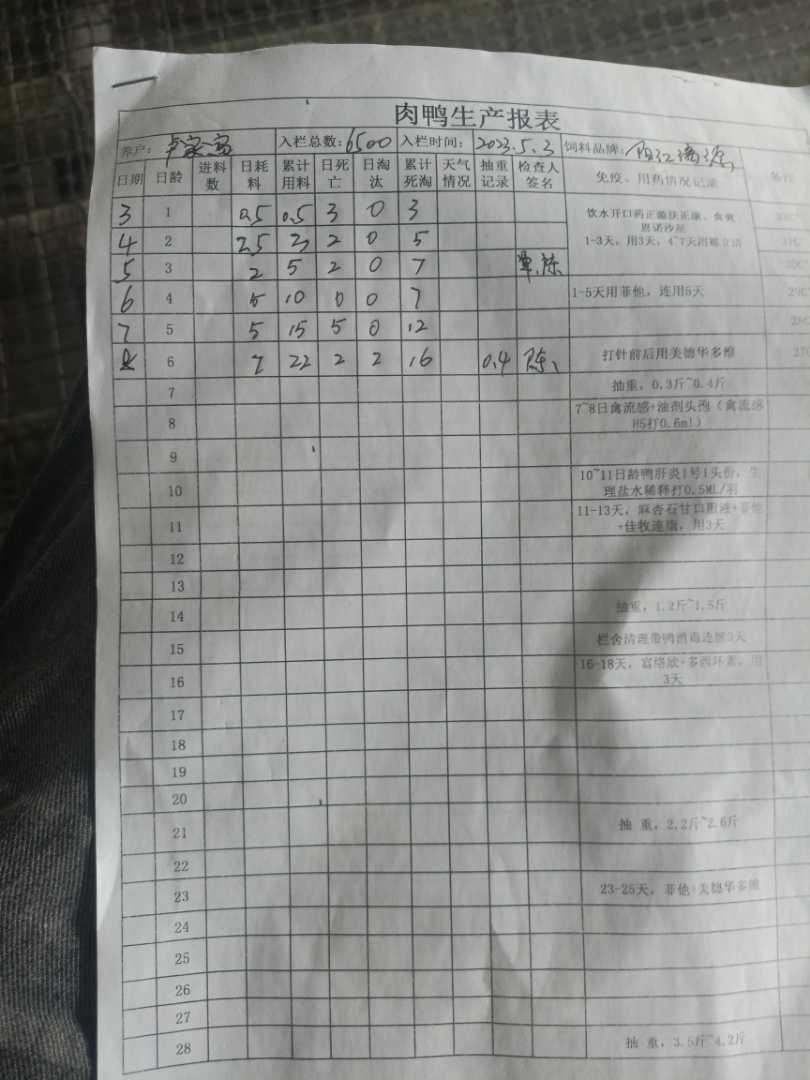 肉鸭生产报表
养户： 入栏总数：6500 入栏时间：2023.5.3 饲料品牌：
日期 日龄 进料数 日耗料 累计用料 日死亡 日淘汰 累计死淘 天气情况 抽重记录 检查人签名 免疫、用药情况记录
3 1 0.5 0.5 3 0 3
4 2 2.5 3 2 0 5
5 3 2 5 2 0 7
6 4 5 10 0 0 7 1-5天用菲他，连用5天
7 5 5 15 5 0 12
6 7 22 2 2 16 0.4 陈 打针前后用美德华多维
7 抽重，0.3斤~0.4斤
8 7~8日禽流感+油剂头孢（禽流感H5打0.6ml）
9
10 10~11日龄鸭肝炎1号1头份，生理盐水稀释打0.5ML/羽
11 11-13天，麻杏石甘口服液+菲他+佳牧连脂，用3天
12
13
14 抽重，1.2斤~1.5斤
15 栏舍清理带鸭消毒连续3天
16 16-18天，富络欣+多西环素，用3天
17
18
19
20
21 抽 重，2.2斤~2.6斤
22
23 23-25天，菲他+美德华多维
24
25
26
27
28 抽 重，3.5斤~4.2斤